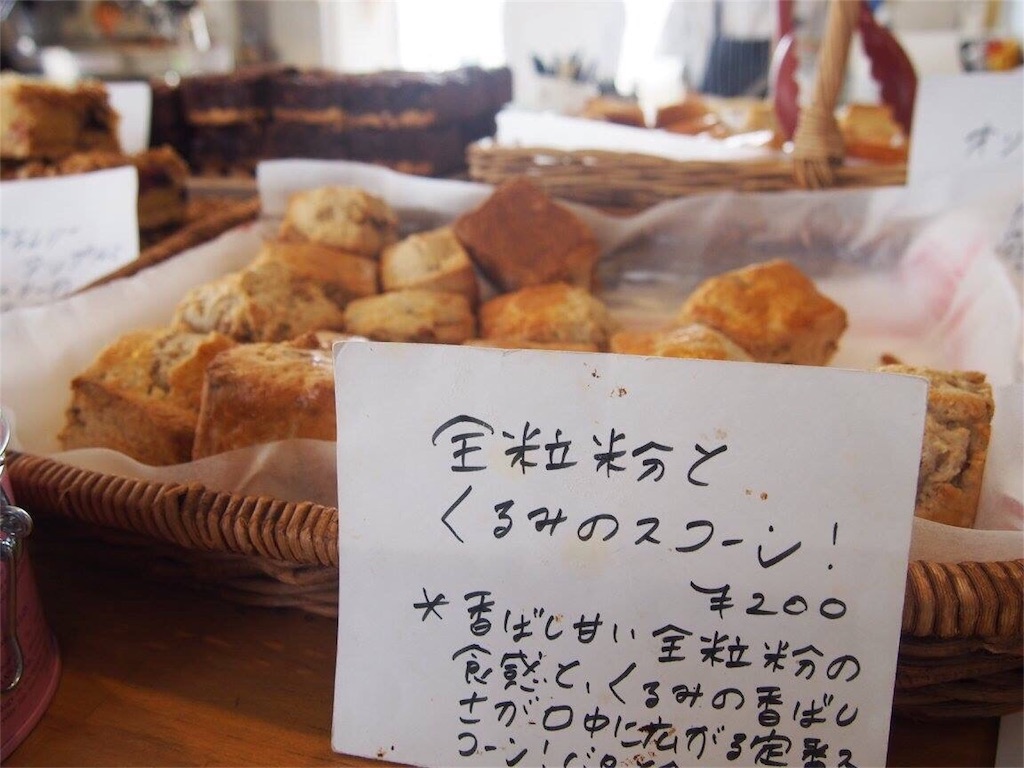 全粒粉と
くるみのスコーン!
¥200
*香ばし甘い全粒粉の
食感と、くるみの香ばし
さが口中に広がる定番ス
コーン!